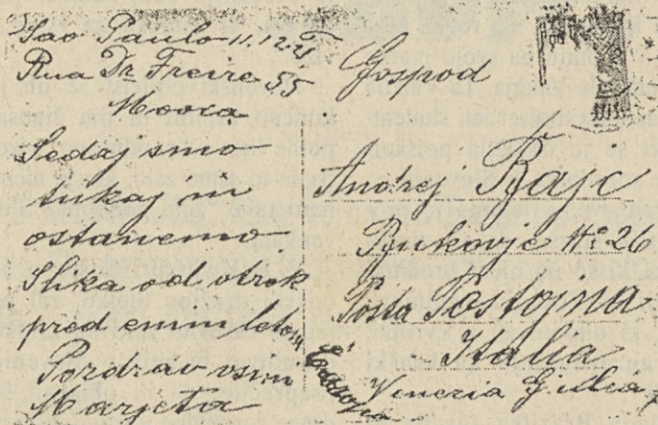 Sao Paulo 11.12.
Rua Dr. Freire 55
Mooca
Sedaj smo
tukaj in
ostanemo
Slika od otrok
pred enim letom
Pozdrav vsem
Marjeta
Gospod
Andrej Bajc
Bukovje No 26
Posta Postojna
Italia
Venezia Giulia
Europa